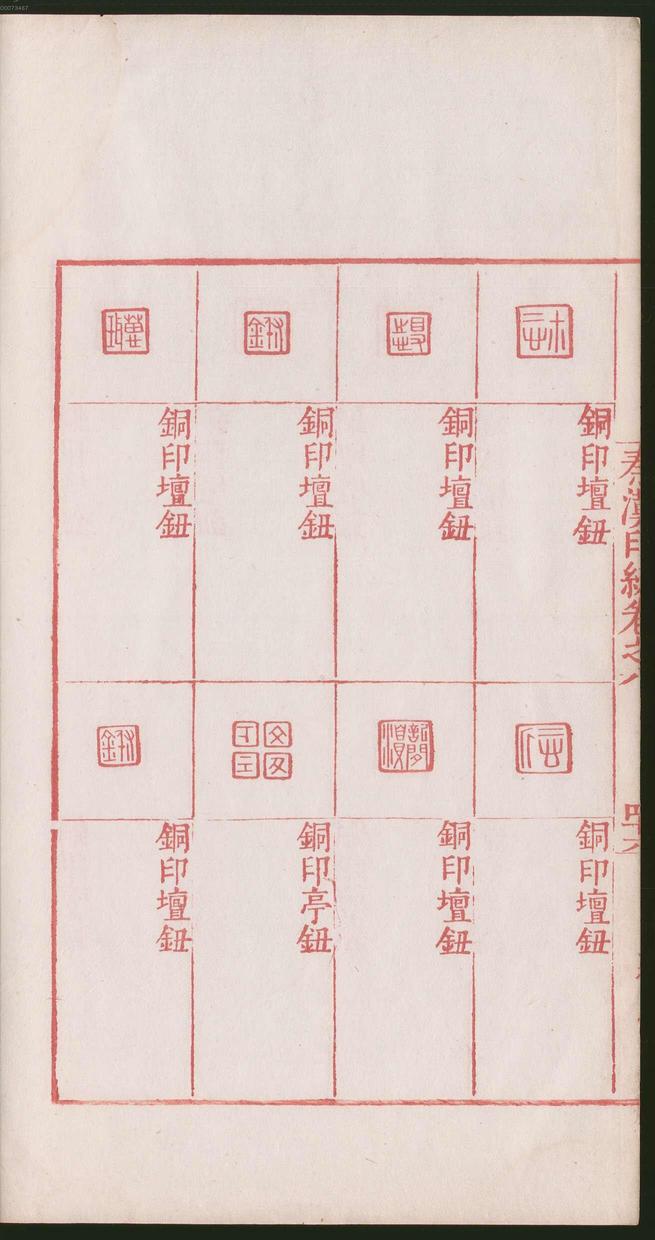 00073467
秦漢印統卷之八
銅印壇鈕
銅印壇鈕
銅印壇鈕
銅印壇鈕
銅印壇鈕
銅印壇鈕
銅印亭鈕
銅印壇鈕